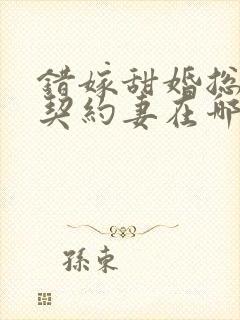 錯嫁甜婚总
契約妻在哪
孫東